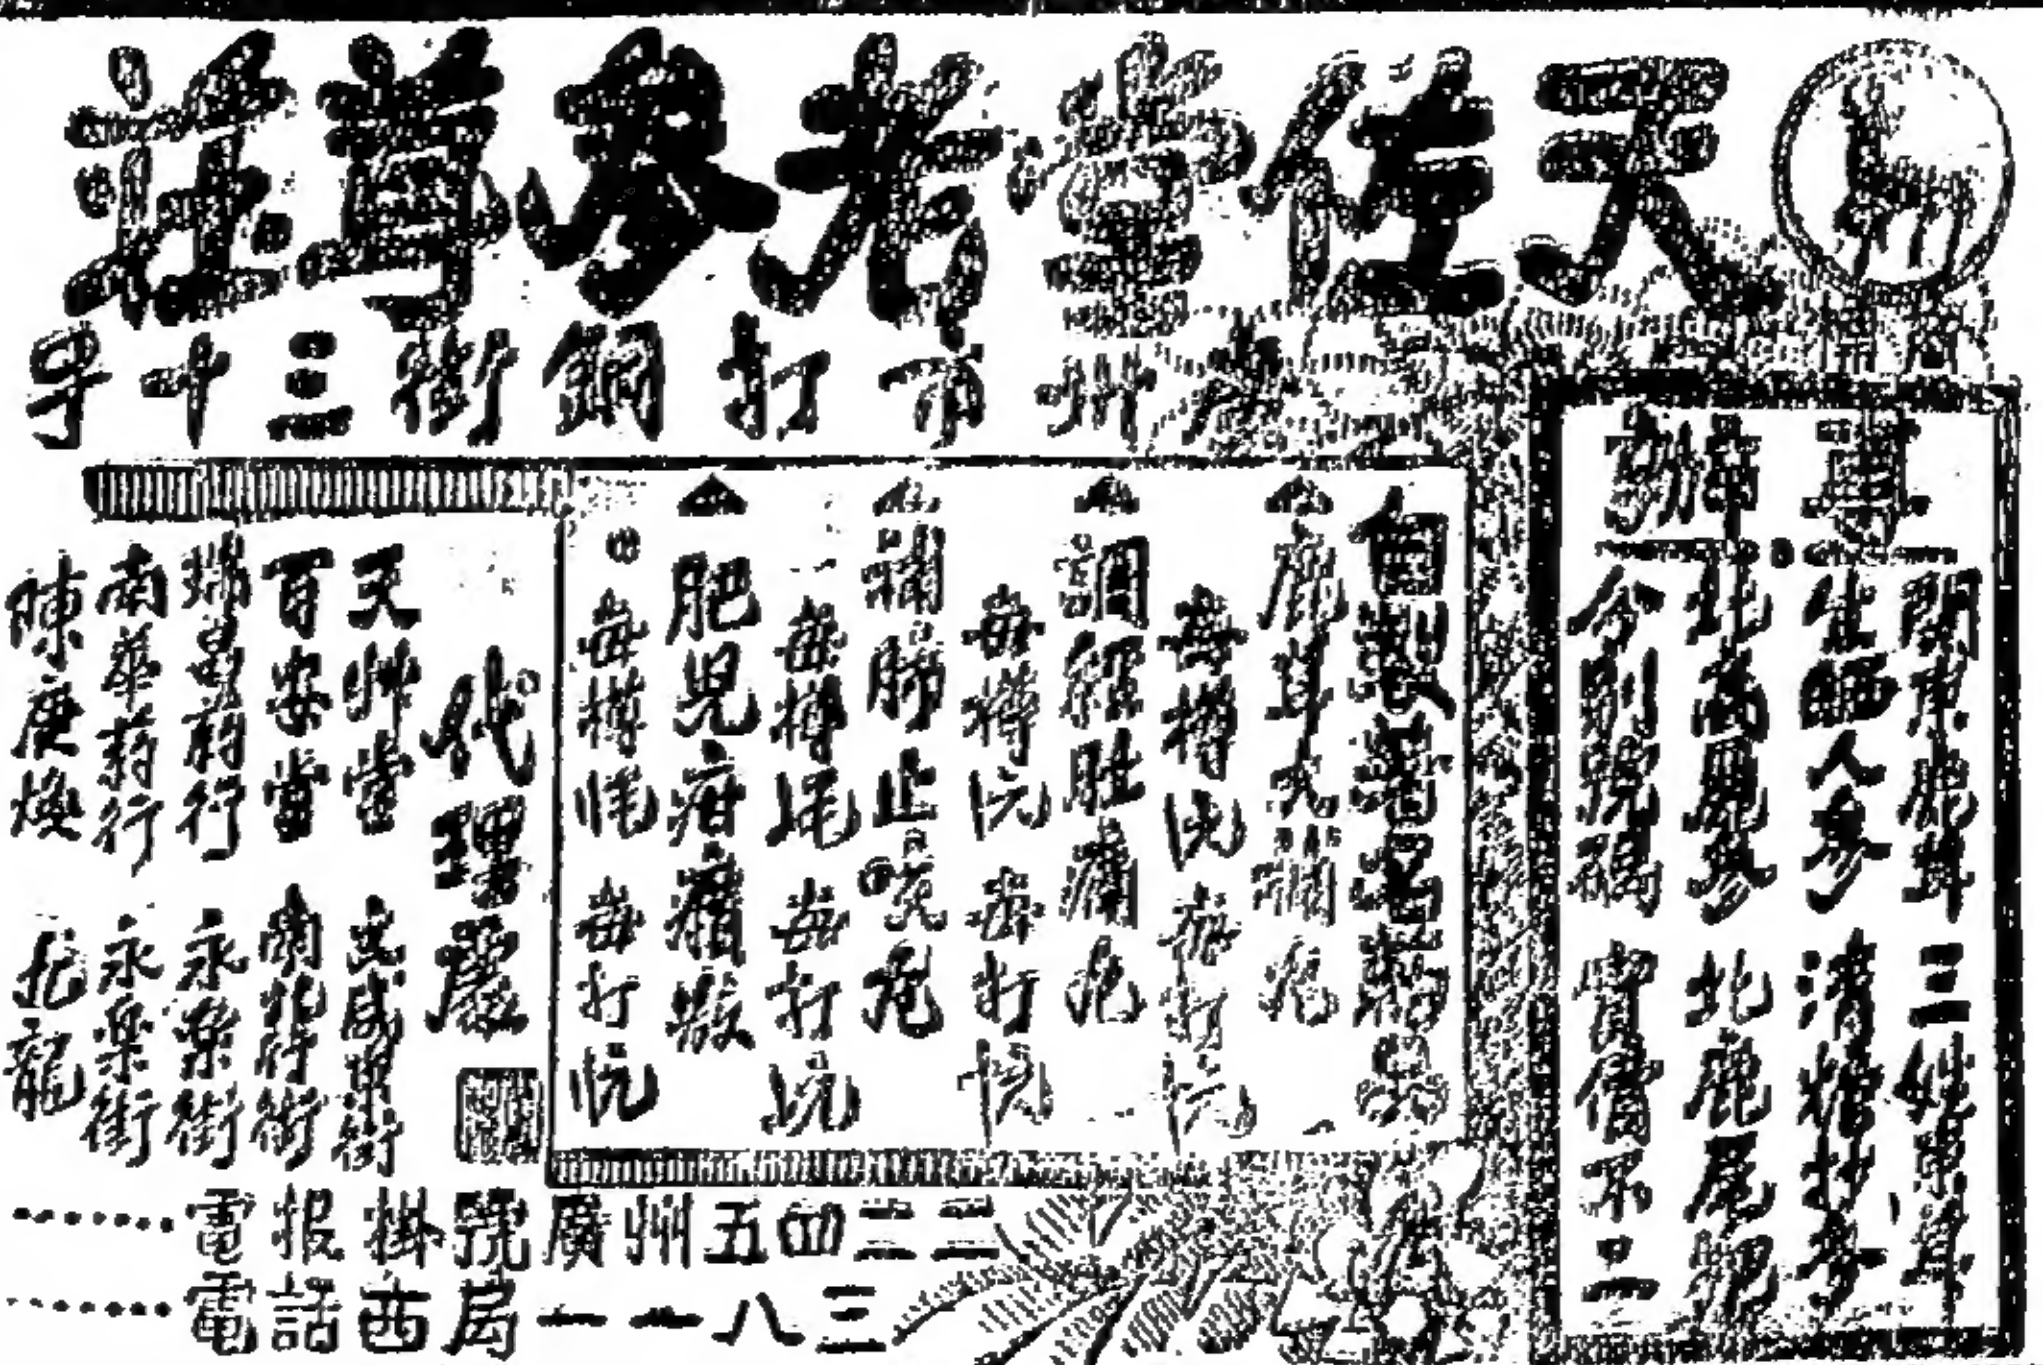 天佐堂老參茸莊
廣州市打銅街三十号
專辦
關東鹿茸 三姓東茸
生晒人參 清糖抄參
北高麗參 北鹿尾羓
分別號碼 實價不二
自製著名葯
鹿茸大補丸
每樽 每打
調經肚痛丸
每樽 每打
補肺止咳丸
每樽 每打
肥兒疳積散
每樽 每打
代理處
天 堂 文咸東街
百安堂 南北行街
瑞昌葯行 永樂街
南華葯行 永樂街
陳庚煥 九龍
電報掛號廣州五四二二
電話西局一一八三